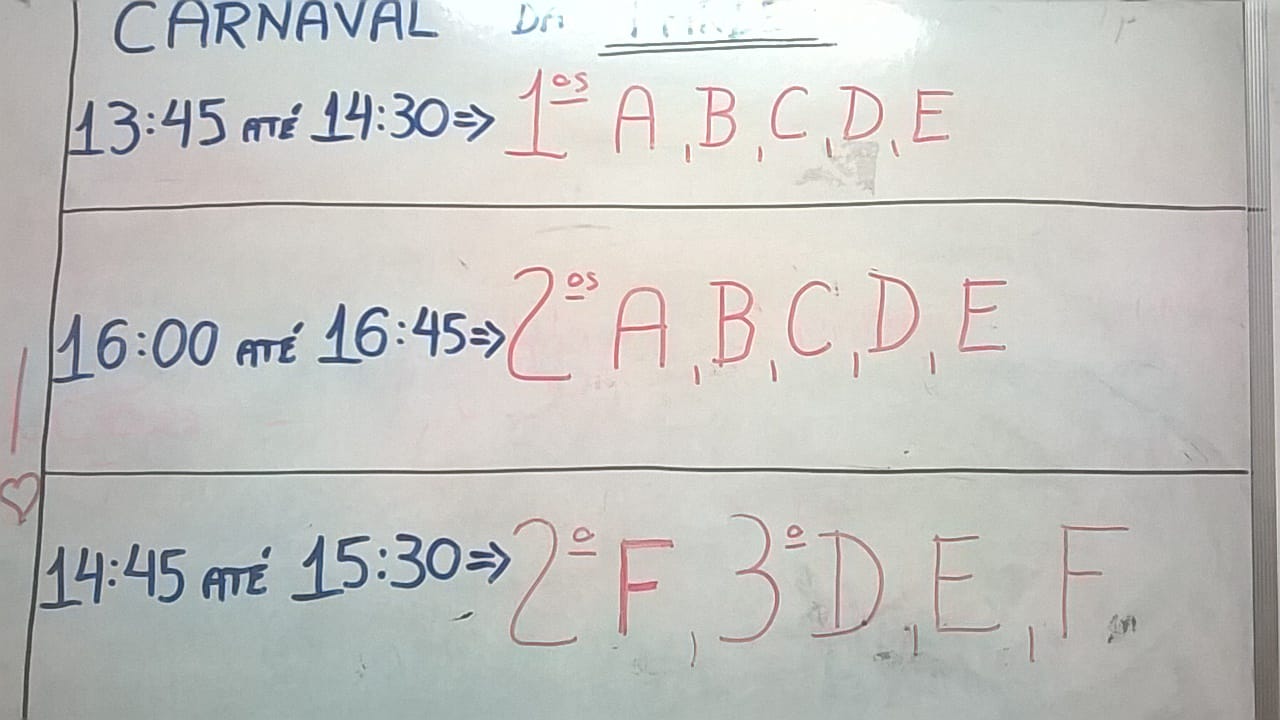 CARNAVAL DA
13:45 ATÉ 14:30⇒ 1ºs A, B, C, D, E
16:00 ATÉ 16:45⇒ 2ºs A, B, C, D, E
14:45 ATÉ 15:30⇒ 2º F, 3º D, E, F